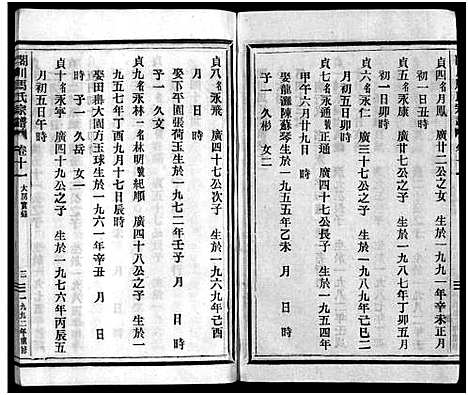 貞四名月鳳 廣廿二公之女 生於一九九一年辛未正月
貞五名永 生於一九八七年丁卯五月
貞六名永仁 廣三十七公之子 生於一九八九年己巳二
月初五日
貞七名永通號正通 廣四十七公長子 生於一九五四年
甲午六月廿九日 時
娶龍灘陳蘇琴生於一九五五年乙未 月 日 時
子一 久彬 女二
貞八名永飛 廣四十七公次子 生於一九六九年己酉
月 日 時
娶下午園張荷玉生於一九七二年壬子 月 日 時
貞九名永林一名林明號紀順 廣四十八公之子 生於一
九五七年丁酉九月十七日辰時
娶田𡌶大園方玉球生於一九六一年辛丑 月 日 時
子一 久岳 女二
貞十名永寧 廣四十九公之子 生於一九七六年丙辰五
月初五日午時
閣川馬氏宗譜 卷十一 大房實錄 三 一九九二年重修